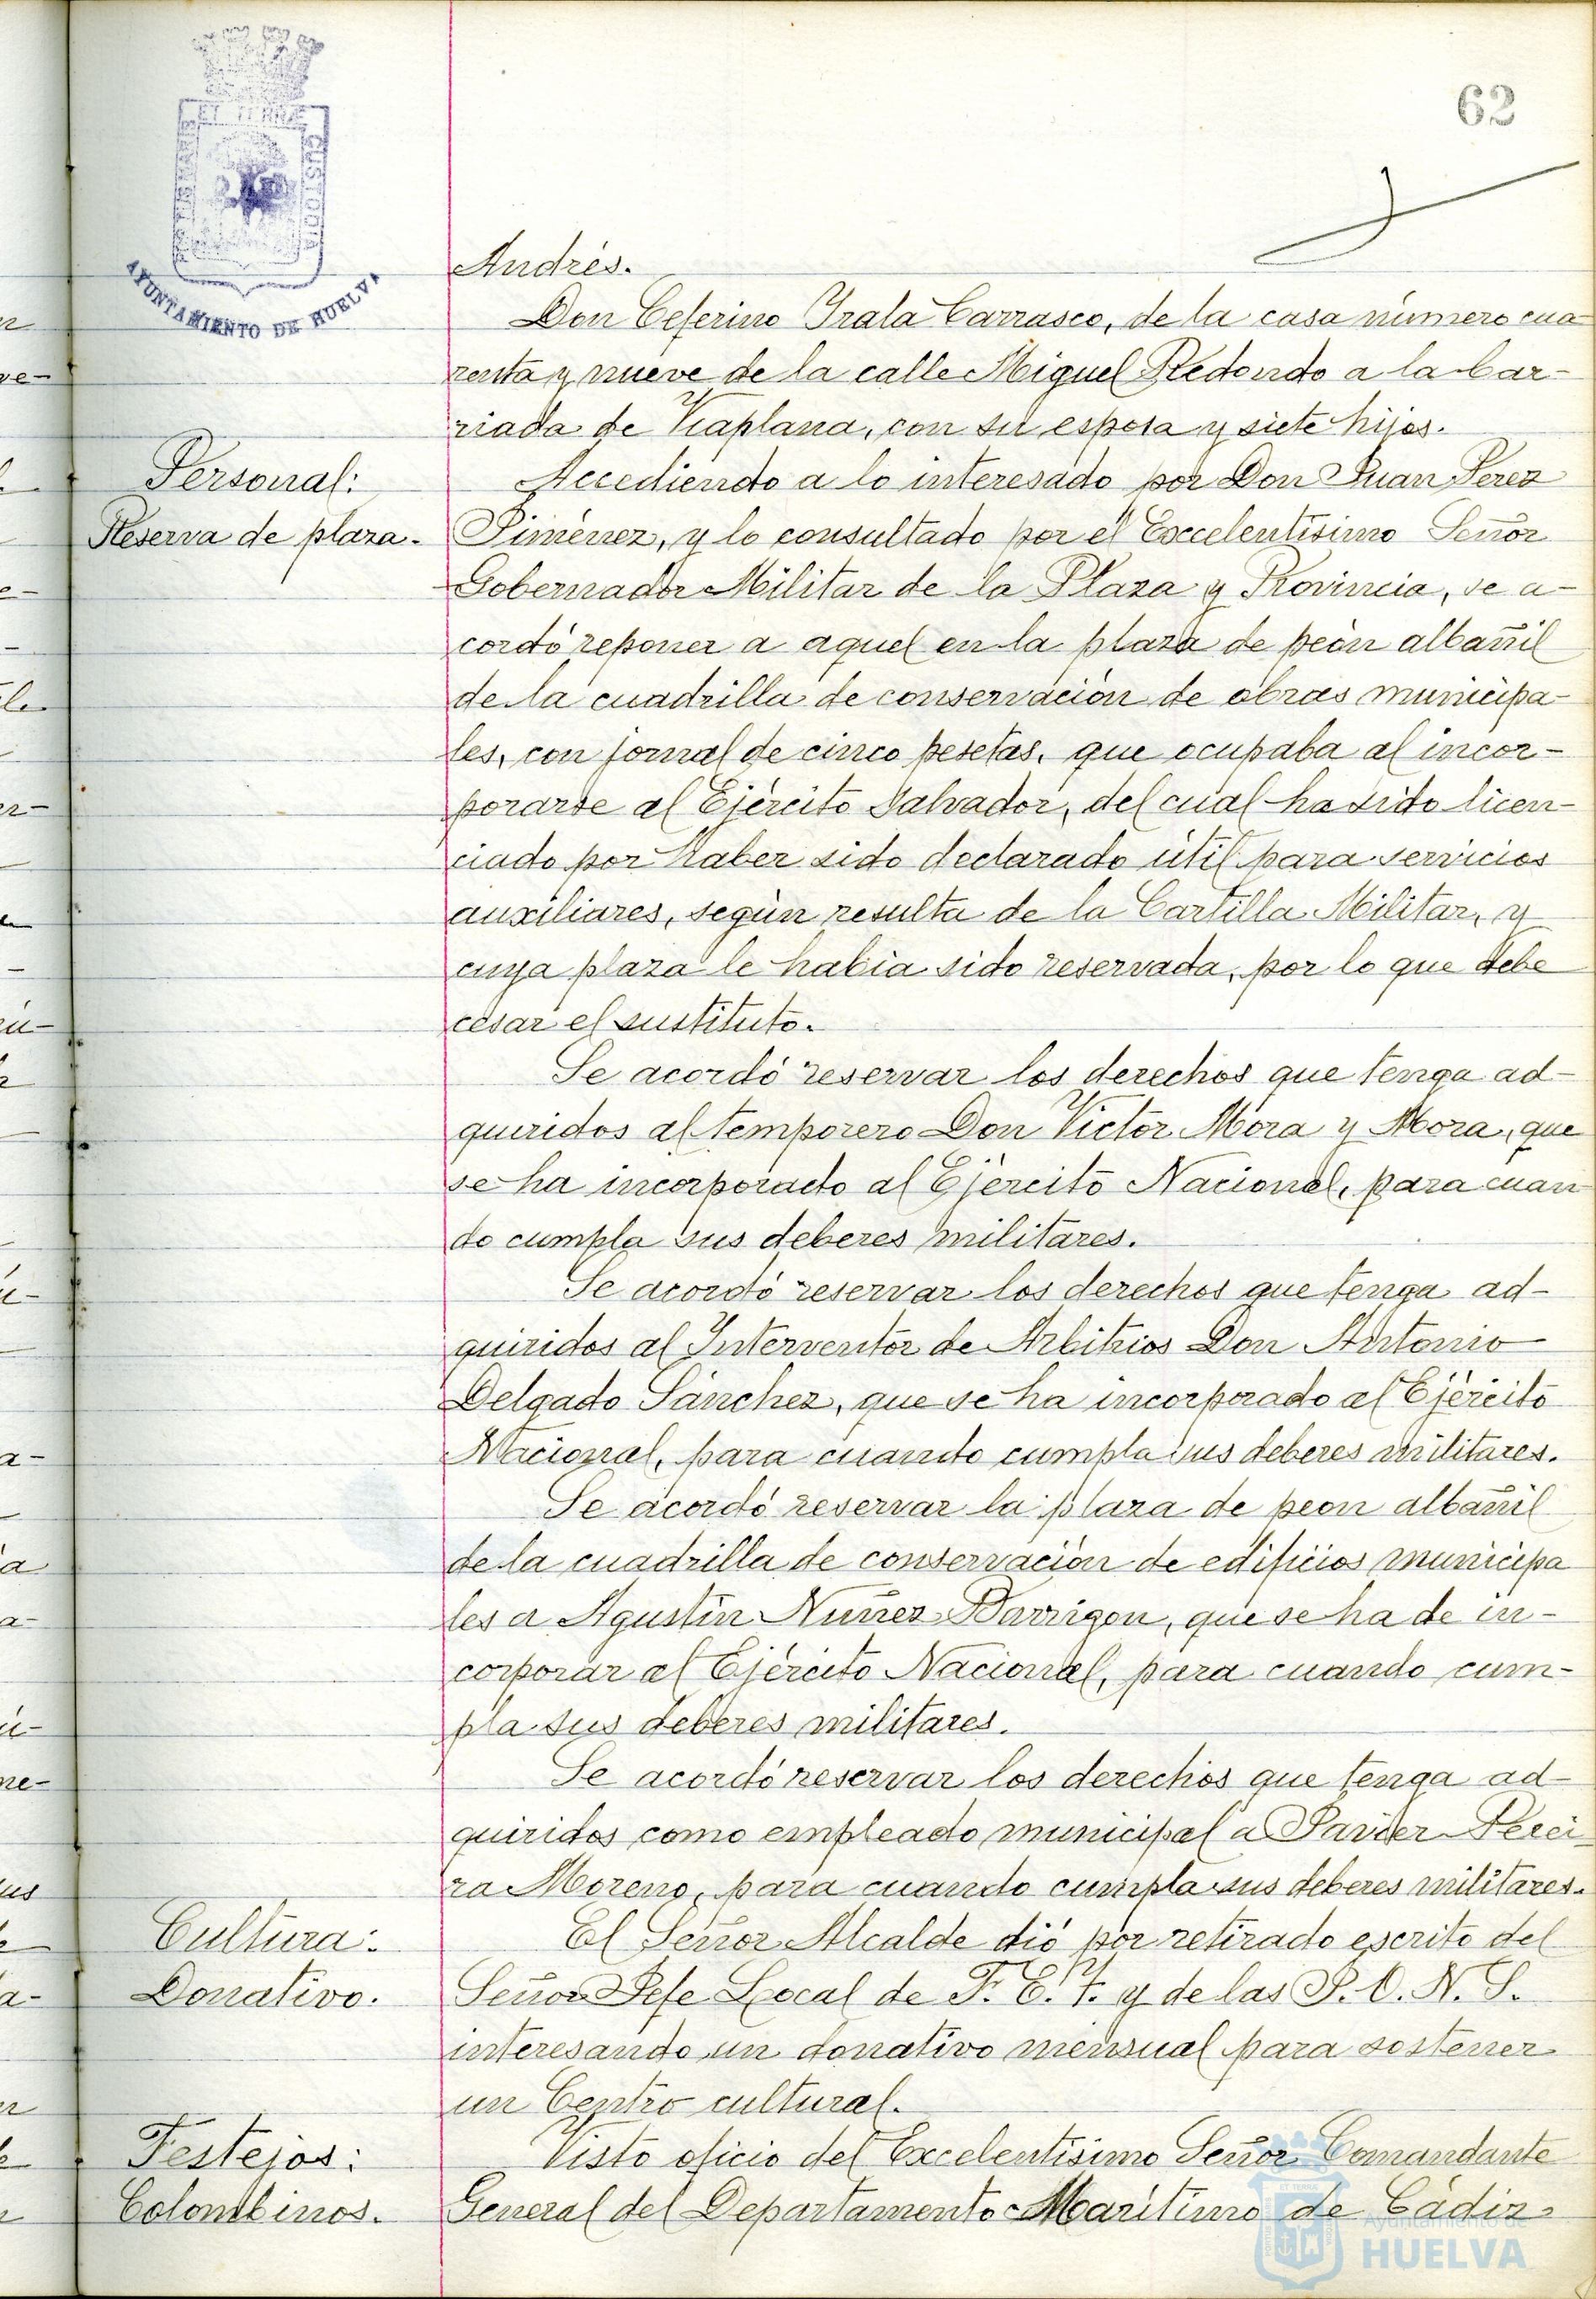 62
ET TERRÆ
CUSTODIA
AYUNTAMIENTO DE HUELVA
Andrés.
Don Ceferino Irala Carrasco, de la casa número cua-
renta y nueve de la calle Miguel Redondo a la bar-
riada de Viaplana, con su esposa y siete hijos.
Personal:
Reserva de plaza.
Accediendo a lo interesado por Don Juan Perez
Jiménez, y lo consultado por el Excelentísimo Señor
Gobernador Militar de la Plaza y Provincia, se a-
cordó reponer a aquel en la plaza de peón albañil
de la cuadrilla de conservación de obras municipa-
les, con jornal de cinco pesetas, que ocupaba al incor-
porarse al Ejército Salvador, del cual ha sido licen-
ciado por haber sido declarado útil para servicios
auxiliares, según resulta de la Cartilla Militar, y
cuya plaza le habia sido reservada, por lo que debe
cesar el sustituto.
Se acordó reservar los derechos que tenga ad-
queridos al temporero Don Victor Mora y Mora, que
se ha incorporado al Ejército Nacional, para cuan-
do cumpla sus deberes militares.
Se acordó reservar los derechos que tenga ad-
quiridos al Interventor de Arbitrios Don Antonio
Delgado Sánchez, que se ha incorporado al Ejército
Nacional, para cuando cumpla sus deberes militares.
Se acordó reservar la plaza de peon albañil
de la cuadrilla de conservación de edificios municipa
les a Agustín Nuñez Barrigon, que se ha de in-
corporar al Ejército Nacional, para cuando cum-
pla sus deberes militares.
Se acordó reservar los derechos que tenga ad-
quiridos como empleado municipal a Javier Perei
ra Moreno, para cuando cumpla sus deberes militares.
Cultura:
Donativo.
El Señor Alcalde dió por retirado escrito del
Señor Jefe Local de F. E. T. y de las J. O. N. S.
interesando un donativo mensual para sostener
un Centro cultural.
Festejos:
Colombinos.
Visto oficio del Excelentísimo Señor Comandante
General del Departamento Marítimo de Cádiz
Ayuntamiento de
HUELVA